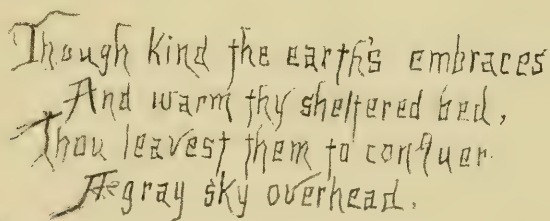 Though kind the earth's embraces
And warm thy sheltered bed,
Thou leavest them to conquer
The gray sky overhead.